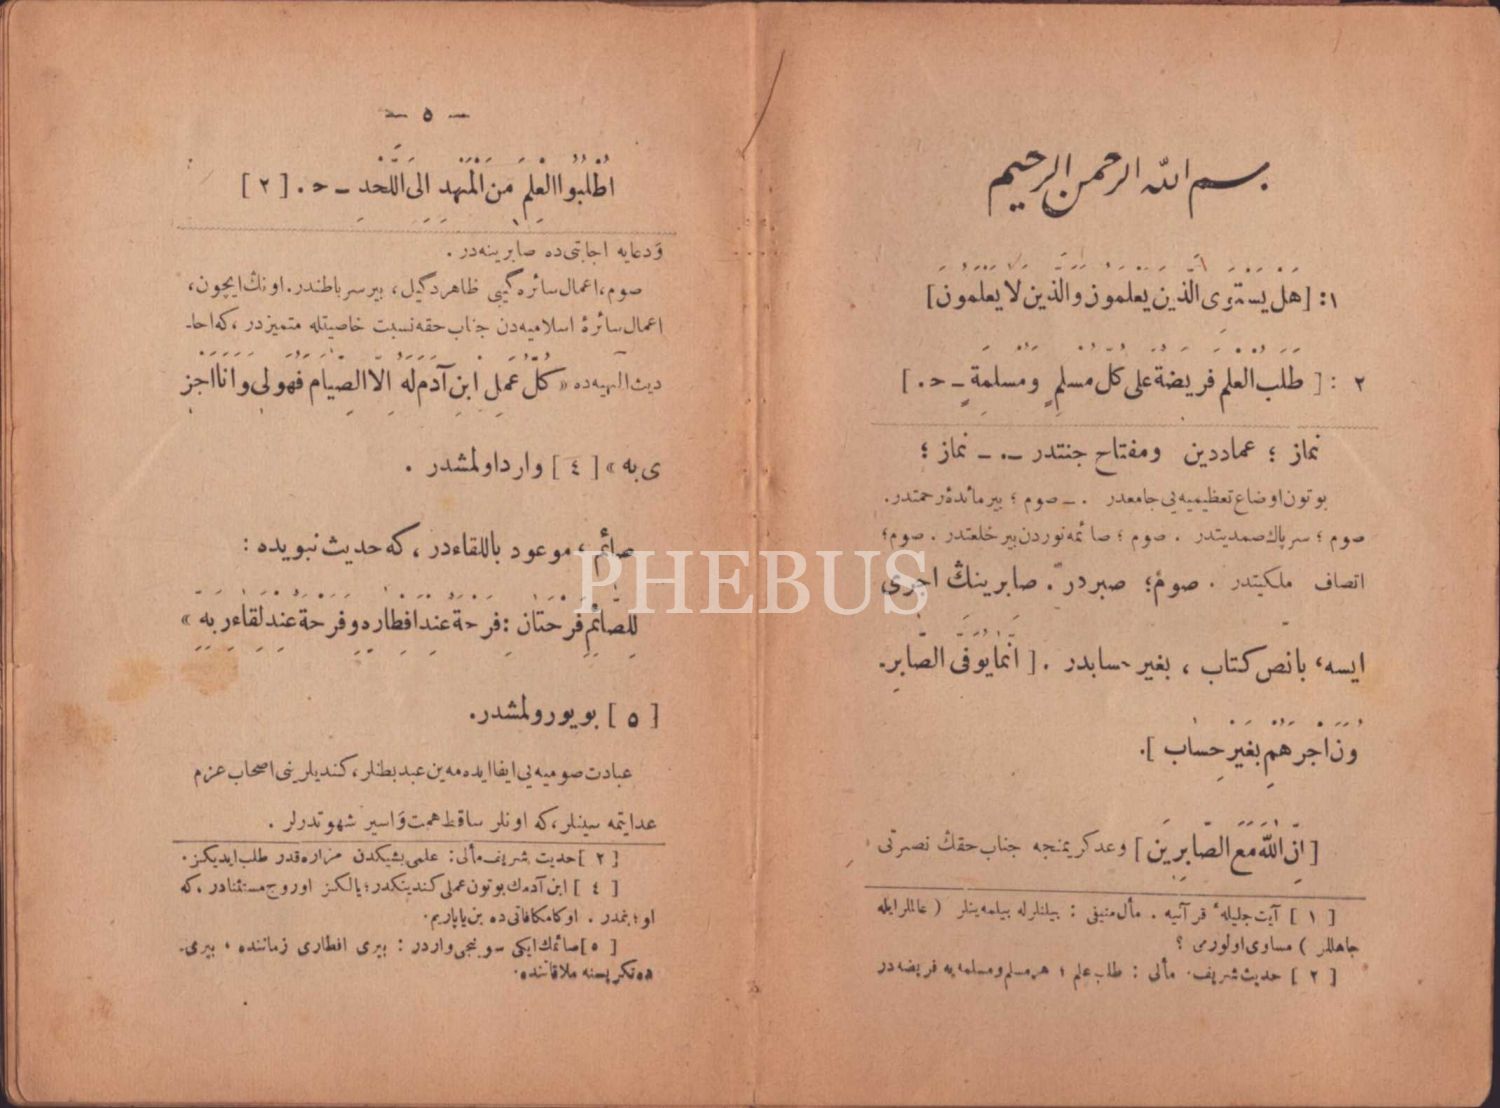 بسم الله الرحمن الرحيم
١: [هل يستوى الذين يعلمون والذين لا يعلمون]
٢ : [ طلب العلم فريضة على كل مسلمٍ ومسلمةٍ ـ ح. ]
نماز ؛ عماددين ومفتاح جنتدر ـ. ـ نماز ؛
بوتون اوضاع تعظيميه يى جامعدر . ـ صوم ؛ بيرمائدهٔ رحمتدر.
صوم ؛ سرپاك صمديتدر . صوم ؛ صائمه نوردن بيرخلعتدر . صوم؛
اتصاف ملكيتدر . صوم؛ صبردر. صابرينڭ اجرى
ايسه، بانص كتاب ، بغير حسابدر . [ انّما يوفّى الصّابِرِ.
ونَ اَجْرَهُمْ بِغَيْرِ حِساب ].
[ اِنَّ اللهَ مَعَ الصّابِرِينَ ] وعد كريمنجه جناب حقڭ نصرتى
[ ١ ] آيت جليلهٔ قرآنيه . مآل منيفى : بيلنلرله بيلمه ينلر ( عالملرايله
جاهللر ) مساوى اولورمى ؟
[ ٢ ] حديث شريف. مآلى : طلب علم ؛ هرمسلم ومسلمه يه فريضه در
ـ ٥ ـ
اُطْلُبُوا العِلْمَ مِنَ الْمَهْدِ اِلَى اللَّحْدِ ـ ح . [ ٢ ]
ودعايه اجابتى ده صابرينه در .
صوم، اعمال سائره گيبى ظاهر دگيل ، بير سر باطندر. اونڭ ايچون،
اعمال سائرهٔ اسلاميه دن جناب حقه نسبت خاصيتله متميزدر ، كه احا-
ديث الٓهيه ده « كُلُّ عَمَلِ ابنِ آدَمَ لَهُ اِلاَّ الصِّيامَ فَهُوَ لِى وَ اَنَا اَجْزِ
ى بِه » [ ٤ ] وارد اولمشدر .
صائم ، موعود باللقاءدر ، كه حديث نبويده :
لِلصّائِمِ فَرْحَتانِ : فَرْحَةٌ عِنْدَ اِفْطارِهِ وَ فَرْحَةٌ عِنْدَ لِقاءِ رَبِّهِ »
[ ٥ ] بويورولمشدر.
عبادت صوميه يى ايفا ايده مه ين عبد بطنلر ، كنديلرينى اصحاب عزم
عدايتمه سينلر ، كه اونلر ساقط همت و اسير شهوتدرلر .
[ ٢ ] حديث شريف مآلى: علمى بشيكدن مزاره قدر طلب ايديكز.
[ ٤ ] ابن آدمك بوتون عملى كندينكدر؛ يالكز اوروج مستثنادر ، كه
او ؛ بنمدر . اوكا مكافاتى ده بن ياپاريم.
[ ٥ ] صائمك ايكى سوينجى واردر : بيرى افطارى زماننده ، بيرى-
ده تكريسنه ملاقاتنده.
PHEBUS